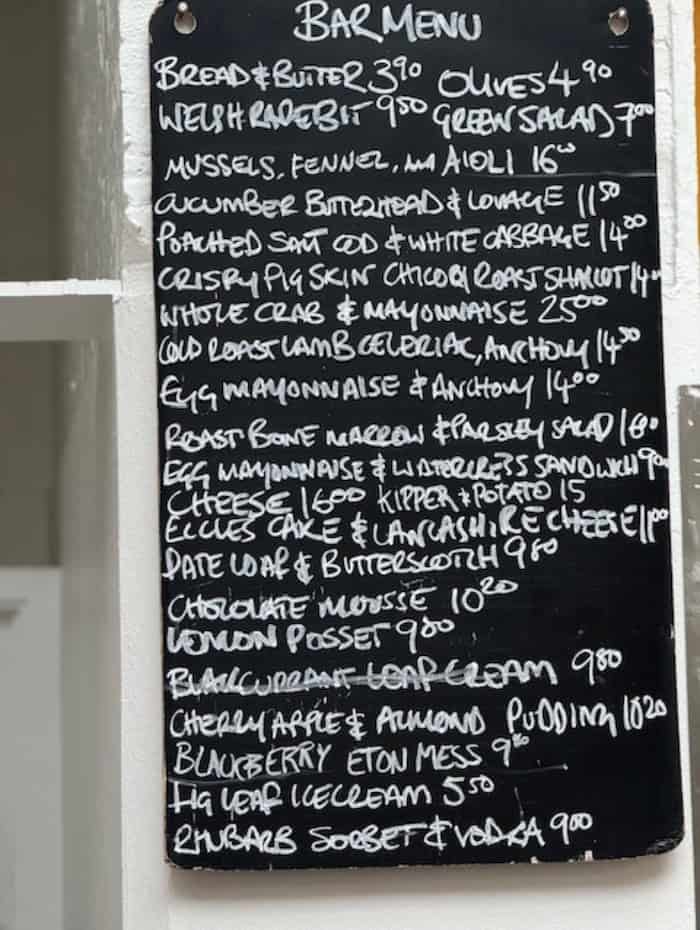 BAR MENU
BREAD & BUTTER 3 90 OLIVES 4 90
WELSH RAREBIT 9 50 GREEN SALAD 7 00
MUSSELS, FENNEL, AIOLI 16 00
CUCUMBER BUTTERHEAD & LOVAGE 11 50
POACHED SALT COD & WHITE CABBAGE 14 00
CRISPY PIG SKIN CHICORY ROAST SHALLOT 14
WHOLE CRAB & MAYONNAISE 25 00
COLD ROAST LAMB CELERIAC, ANCHOVY 14 50
EGG MAYONNAISE & ANCHOVY 14 00
ROAST BONE MARROW & PARSLEY SALAD 16 00
EGG MAYONNAISE & WATERCRESS SANDWICH 9 00
CHEESE 16 00 KIPPER & POTATO 15
ECCLES CAKE & LANCASHIRE CHEESE 11 00
DATE LOAF & BUTTERSCOTCH 9 80
CHOCOLATE MOUSSE 10 20
LEMON POSSET 9 80
BLACKCURRANT LEAF CREAM 9 80
CHERRY APPLE & ALMOND PUDDING 10 20
BLACKBERRY ETON MESS 9 80
FIG LEAF ICECREAM 5 50
RHUBARB SORBET & VODKA 9 00